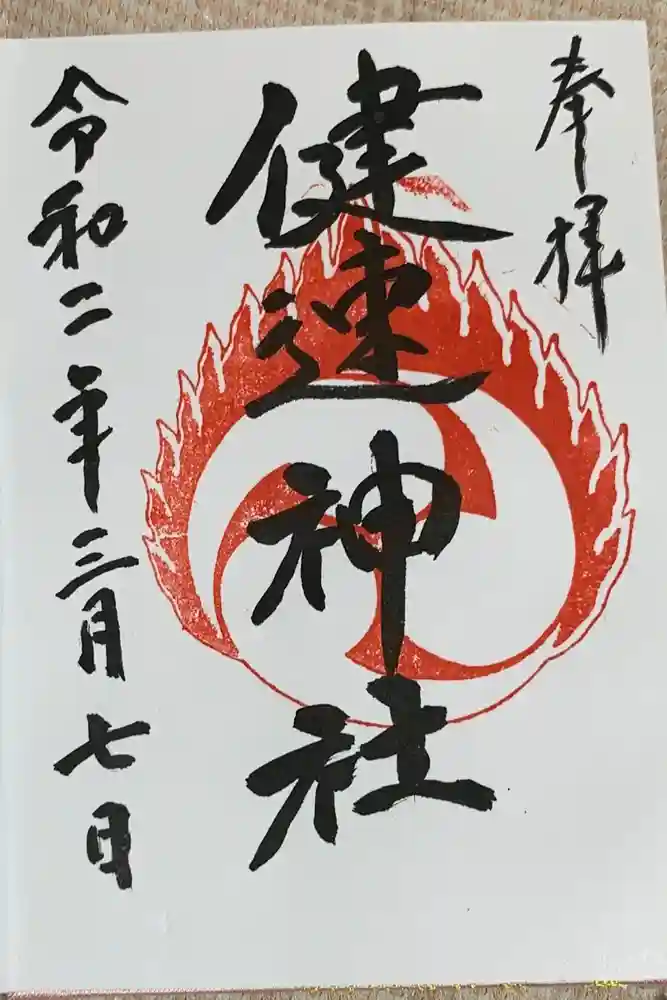 奉拝
健速神社
令和二年三月七日